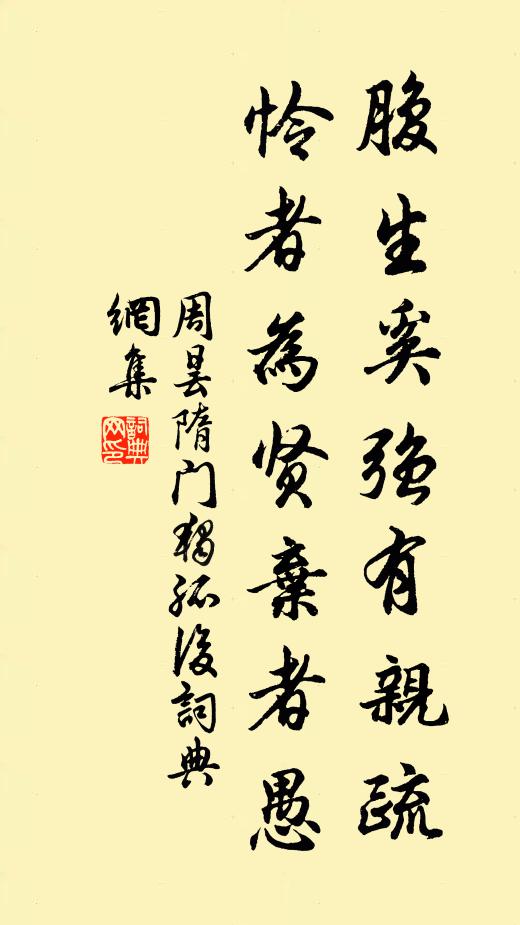 腹生奚强有親疏
怜者為贤棄者愚
周昙隋门獨孤後詞典
網集
詞典网印